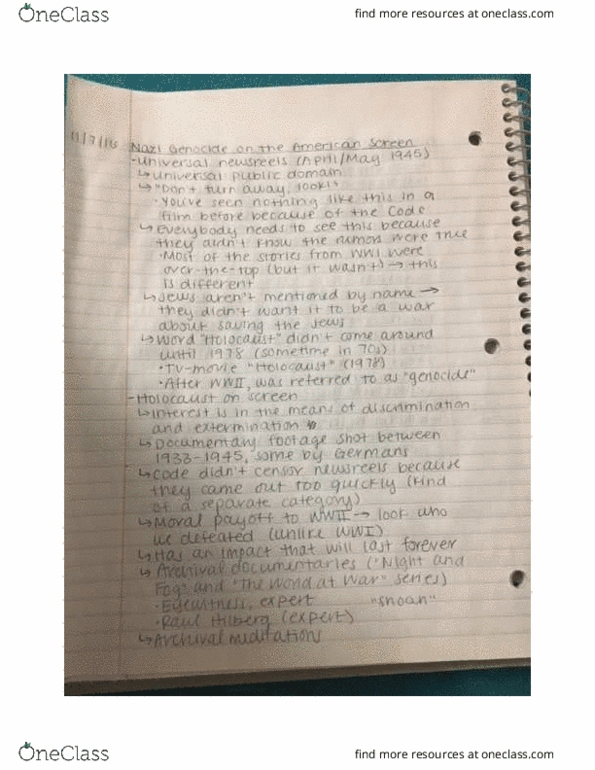 OneClass find more resources at oneclass.com
11/7/16 Nazi Genocide on the American Screen
-Universal newsreels (April/May 1945)
↳universal public domain
↳"Don't turn away, look!"
•You've seen nothing like this in a
film before because of the Code
↳Everybody needs to see this because
they didn't know the rumors were true
•Most of the stories from WWI were
over-the-top (but it wasn't)→ this
is different
↳Jews aren't mentioned by name→
they didn't want it to be a war
about saving the Jews
↳Word "Holocaust" didn't come around
until 1978 (sometime in 70s)
•TV-movie "Holocaust" (1978)
•After WWII, was referred to as "genocide"
-Holocaust on screen
↳Interest is in the means of discrimination
and extermination
↳Documentary footage shot between
1933-1945, some by Germans
↳Code didn't censor newsreels because
they came out too quickly (kind
of a separate category)
↳Moral payoff to WWII→ look who
we defeated (unlike WWI)
↳Has an impact that will last forever
↳Archival documentaries ("Night and
Fog" and "The World at War" series)
•Eyewitness, expert "shoah"
•Raul Hilberg (expert)
↳Archival meditations
OneClass find more resources at oneclass.com